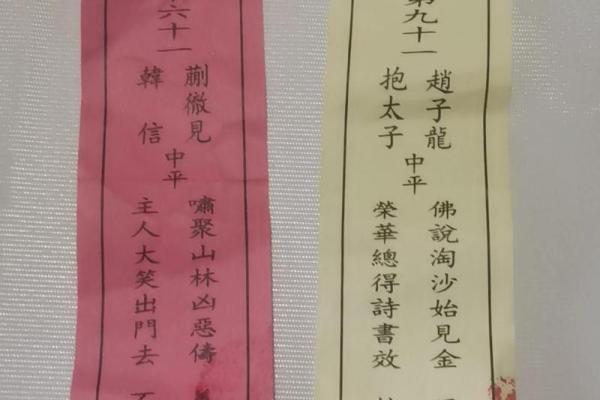 六十一
蒯微見
韓信
中平
嘯聚山林凶惡儔
主人大笑出門去
第九十一
趙子龍
抱太子
中平
佛說淘沙始見金
榮華總得詩書效